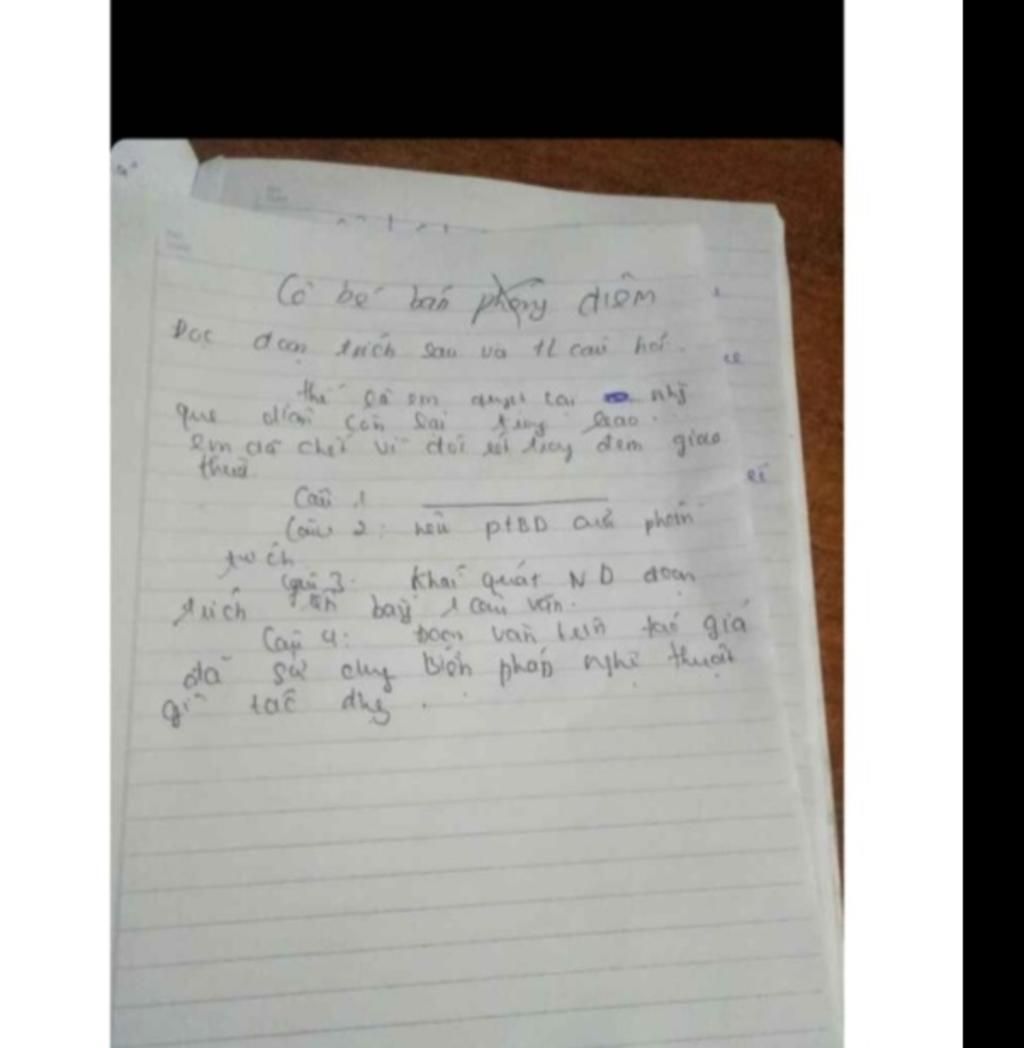 Cô bé bán diêm
Đọc đoạn trích sau và tl câu hỏi.
thế là em quẹt tất nhg
que diêm còn lại trong bao.
em đã chết vì đói rét trong đêm giao
thừa
Câu 1
Câu 2: nêu PTBĐ của phần
trích
Câu 3: Khái quát ND đoạn
trích bằg 1 câu văn.
Câu 4: Đoạn văn trên tác giả
đã sử dụng biện pháp nghệ thuật
gì tác dụg.